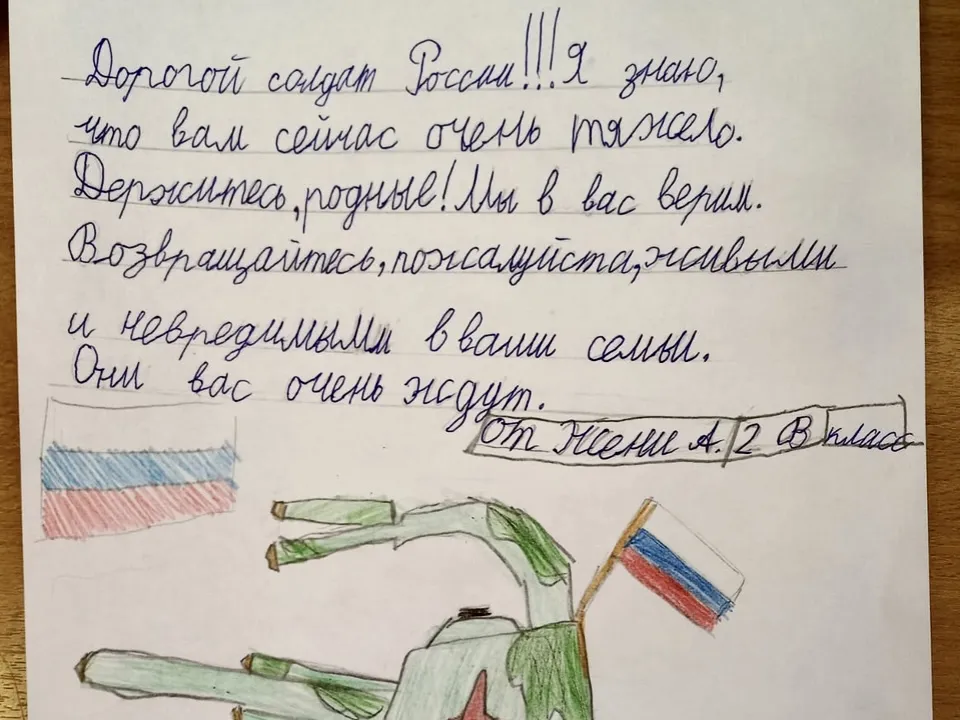 Дорогой солдат России!!! Я знаю,
что вам сейчас очень тяжело.
Держитесь, родные! Мы в вас верим.
Возвращайтесь, пожалуйста, живыми
и невредимыми в ваши семьи.
Они вас очень ждут.
от Жени А. 2 В класс